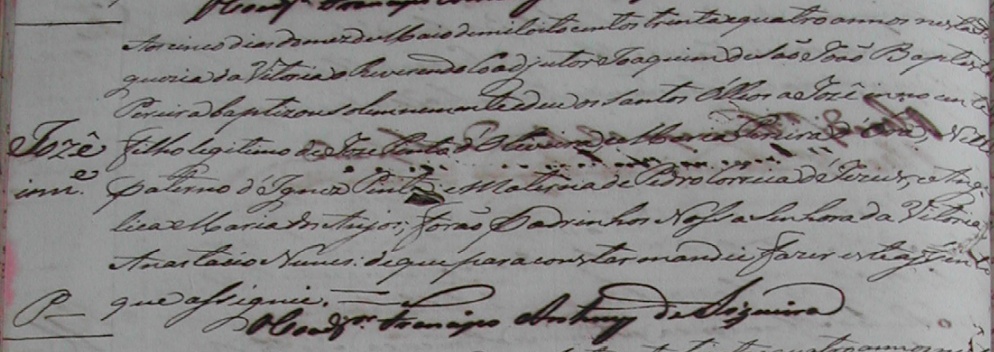 Aos cinco dias do mez de Maio de mil oito centos trinta e quatro annos nesta Fre
guezia da Vitoria o Reverendo Coadjutor Joaquim de São João Baptista
Pereira baptizou solemnemente e deu os Santos Olhos a Jozê innocente
Jozê
filho legitimo de Joze Pinto d'Oliveira e Maria Pereira Neto
inn.e
paterno d'Ignez Pinta: e Materna de Pedro Correia de Jezus, e Ange
lica Maria dos Anjos; forão Padrinhos Nossa Senhora da Vitoria,
Anastacio Nunes: de que para constar mandei fazer este assento
P
que assignei.
O Coadj.or Francisco Antonio de Siqueira